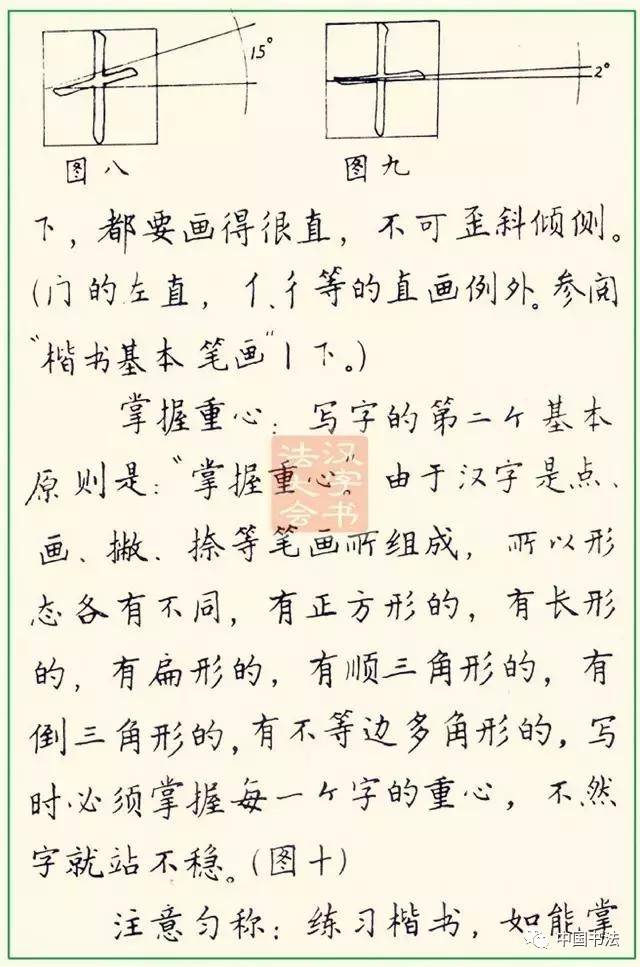 15°
2°
图八
图九
下，都要画得很直，不可歪斜倾侧。
(门的左直，亻、彳等的直画例外。参阅
“楷书基本笔画”丨下。)
掌握重心：写字的第二个基本
原则是：“掌握重心”。由于汉字是点、
画、撇、捺等笔画所组成，所以形
态各有不同，有正方形的，有长形
的，有扁形的，有顺三角形的，有
倒三角形的，有不等边多角形的，写
时必须掌握每一个字的重心，不然
字就站不稳。(图十)
注意匀称：练习楷书，如能掌
汉字书
法大会
中国书法